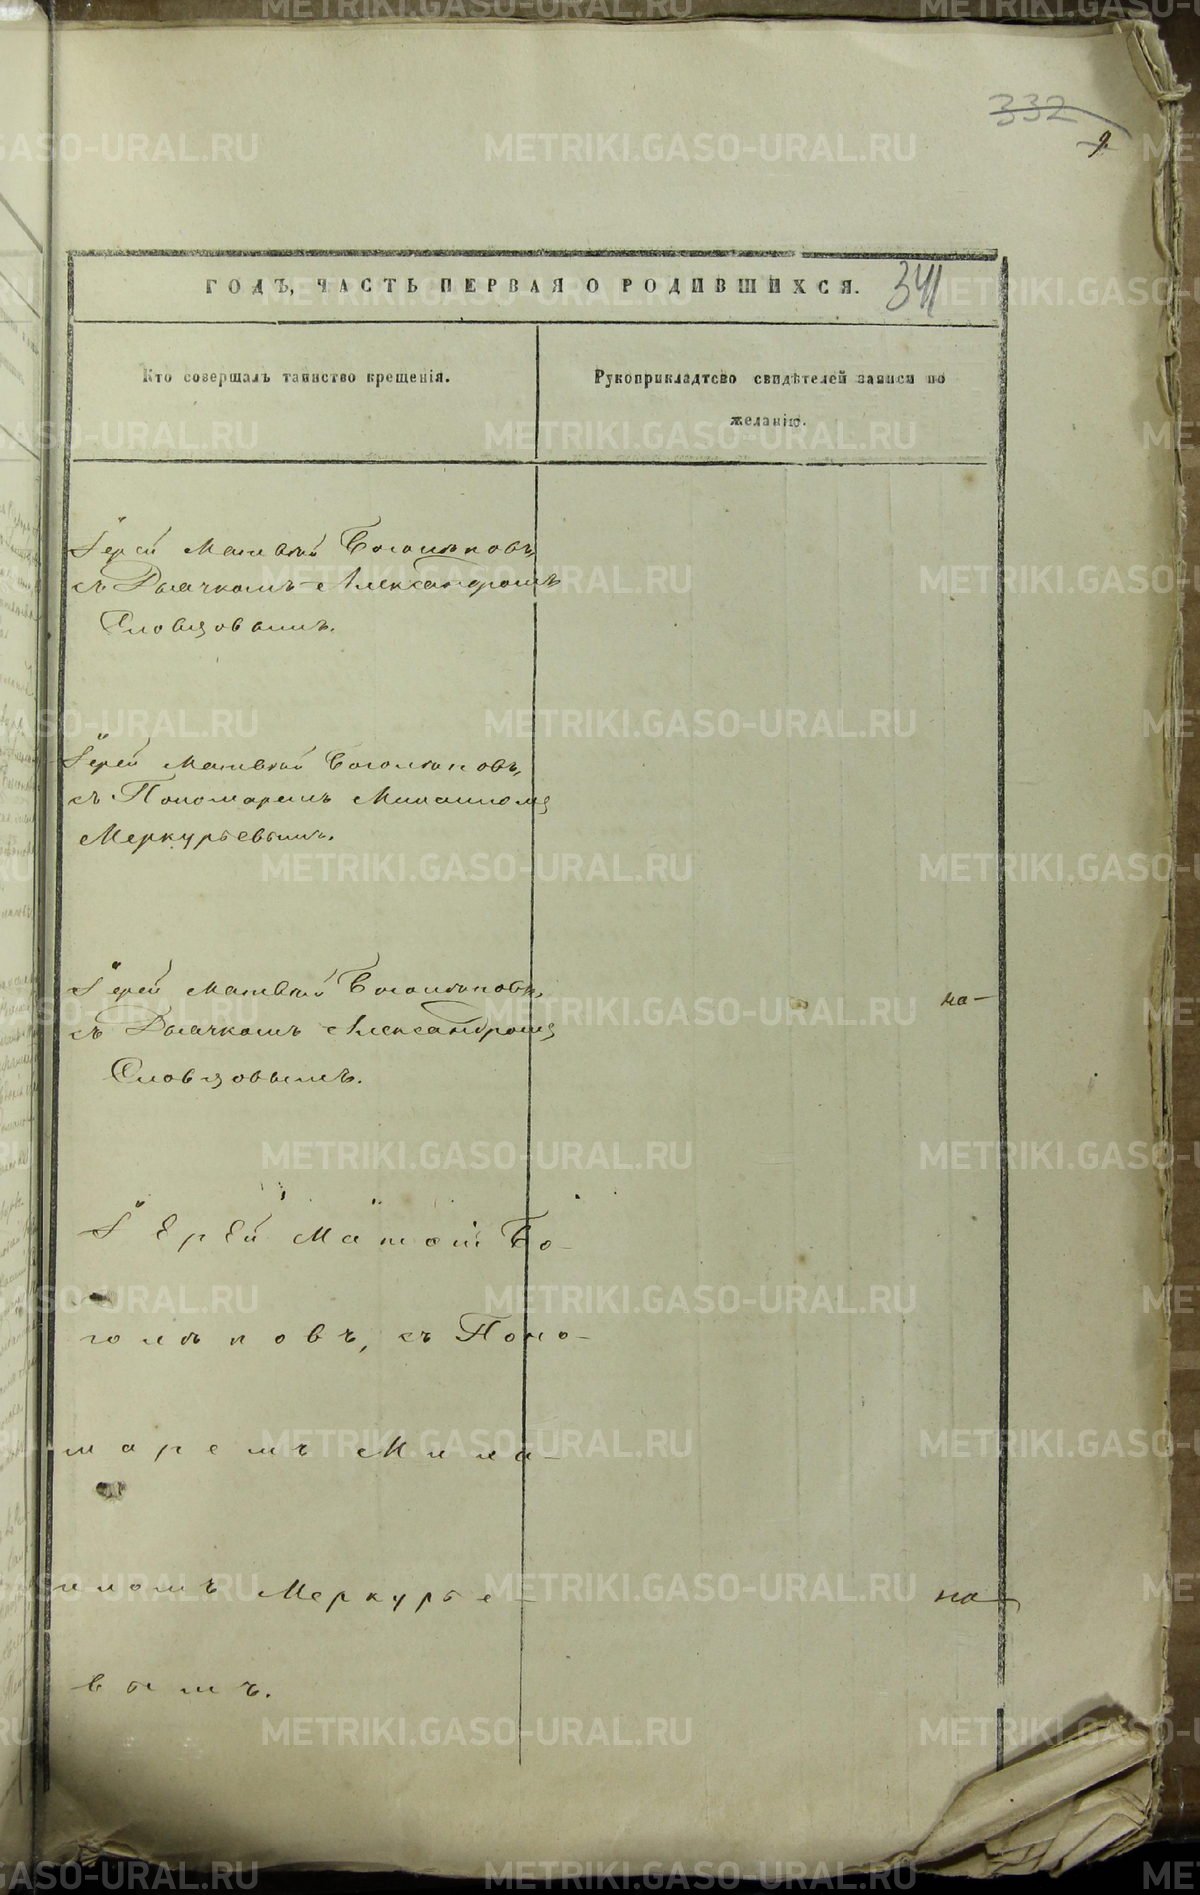 332
9
ГОДЪ, ЧАСТЬ ПЕРВАЯ О РОДИВШИХСЯ.
341
Кто совершалъ таинство крещенія.
Рукоприкладтсво свидѣтелей записи по
желанію.
Іерей Матвѣй Боголѣповъ,
съ Дьячкомъ Александромъ
Словцовымъ.
Іерей Матвѣй Боголѣповъ,
съ Пономаремъ Михаиломъ
Меркурьевымъ.
Іерей Матвѣй Боголѣповъ,
съ Дьячкомъ Александромъ
Словцовымъ.
на-
Іерей Матѳій Бо-
голѣповъ, съ Поно-
маремъ Миха-
иломъ Меркурье-
на-
вымъ.
METRIKI.GASO-URAL.RU